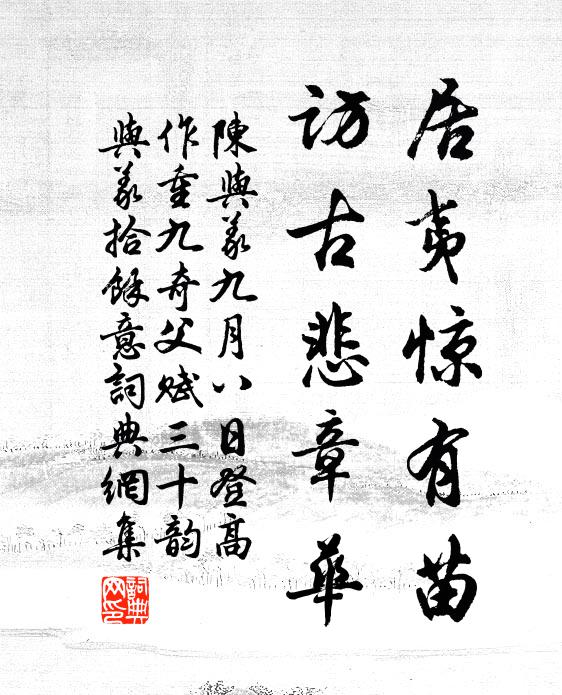 居夷惊有苗
访古悲章華
陳與義九月八日登高
作重九奇父赋三十韵
與義拾餘意詞典網集
詞典
网印